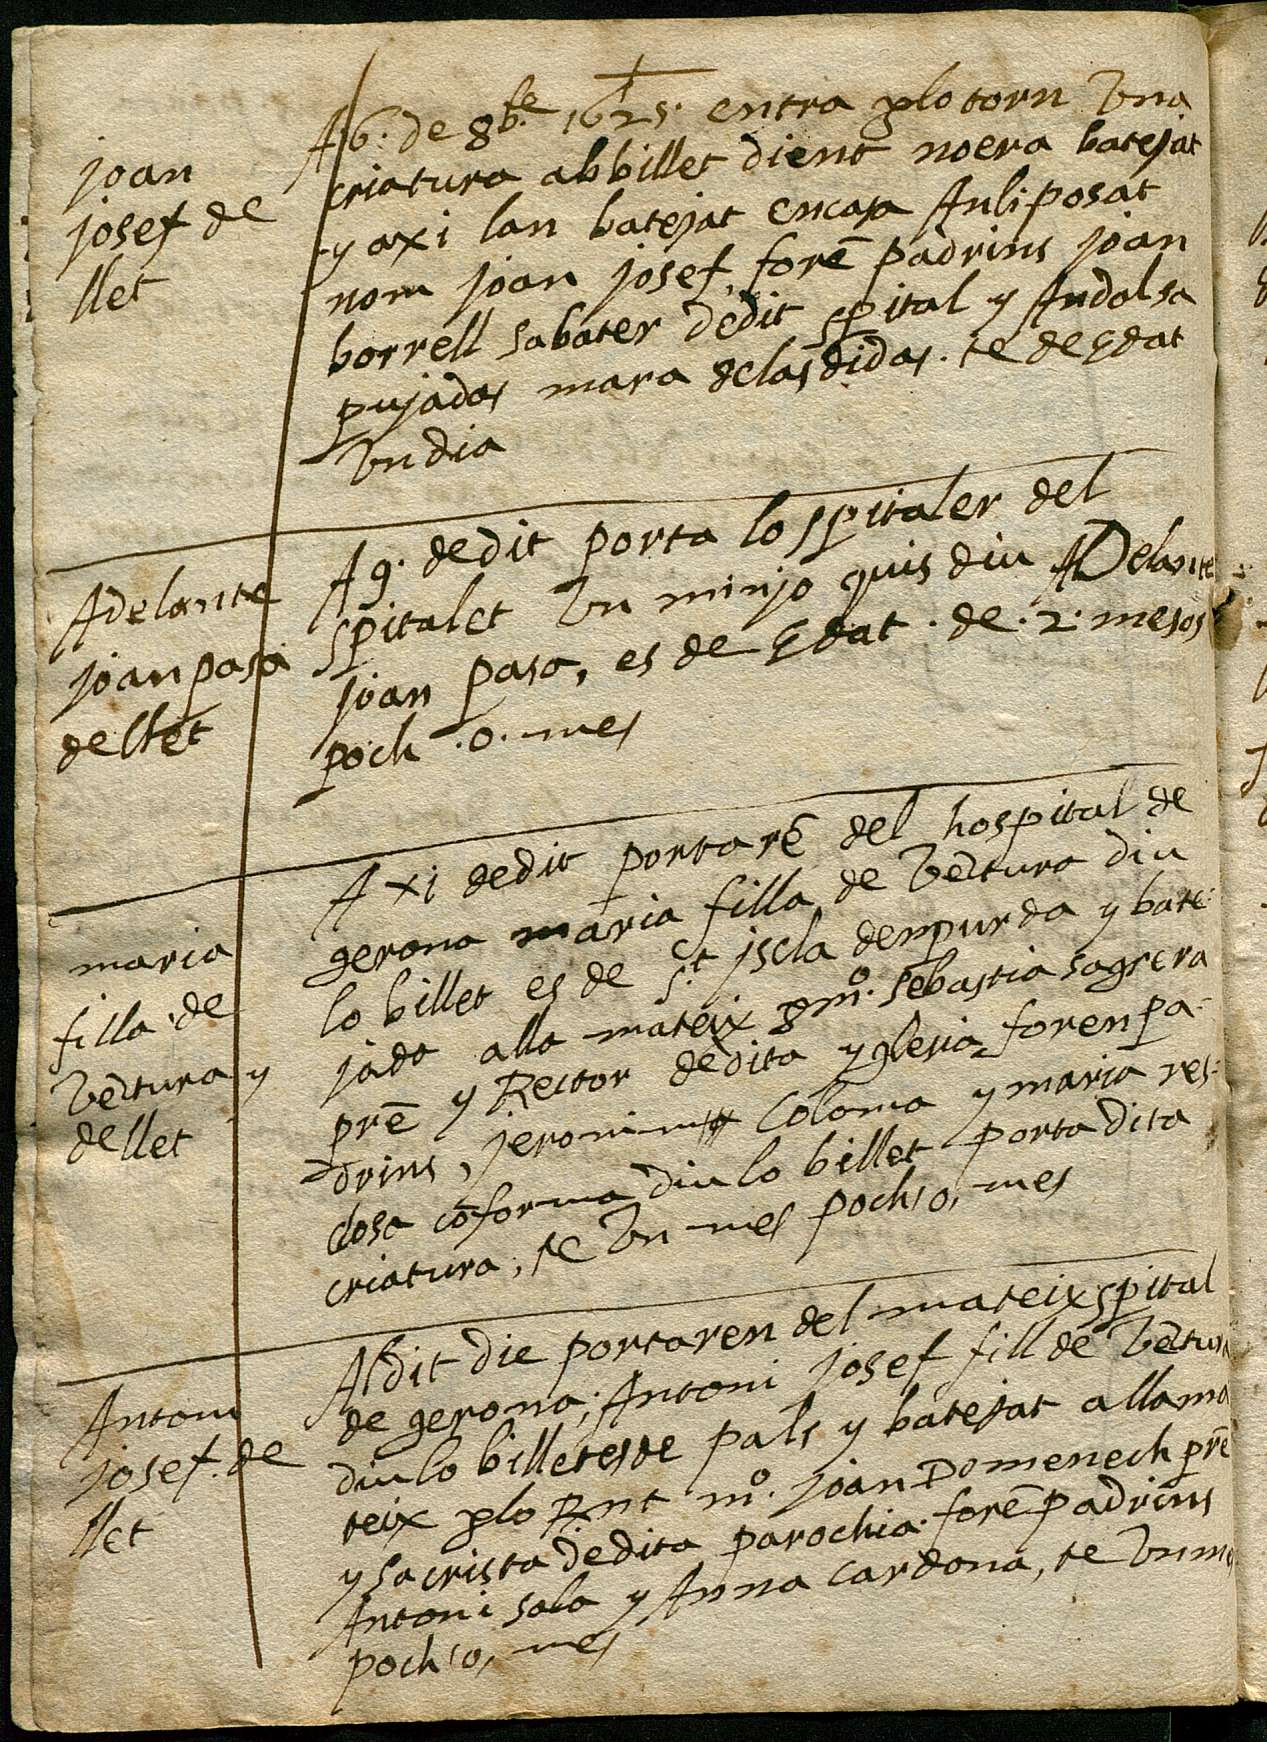 joan
josef de
llet
A 6. de 8bre 1625. entra plo torn Vna
criatura ab billet dient noera batejat
y axi lan batejat encapa Anli posat
nom joan josef, forē padrins joan
borrell sabater dedit spital y Andolsa
pujadas mara de las didas. te de Edat
Vn dia
Adelante
joan pasa
de llet
A 9. de dit porta lo spitaler del
spitalet Vn minjo quis diu ADelante
joan pasa, es de Edat. de. 2. mesos
poch .o. mes
maria
filla de
Vētura y
de llet
A xi de dit portarē del hospital de
gerona maria filla de Vētura diu
lo billet es de St. iscla dempurda y bate-
jada alla mateix p mo. sebastia sagrera
prē y Rector de dita yglesia foren pa-
drins, jeronim Coloma y maria res-
closa cōforma diu lo billet porta dita
criatura, te Vn mes poch, o, mes
Antoni
josef. de
llet
Al dit die portaren del mateix spital
de gerona, Antoni josef fill de Vētura
diu lo billet es de pals y batejat alla ma
teix plo Rnt mo. joan Domenech prē
y sacrista de dita parochia. forē padrins
Antoni sala y Anna cardona, te Vn mes
poch, o, mes